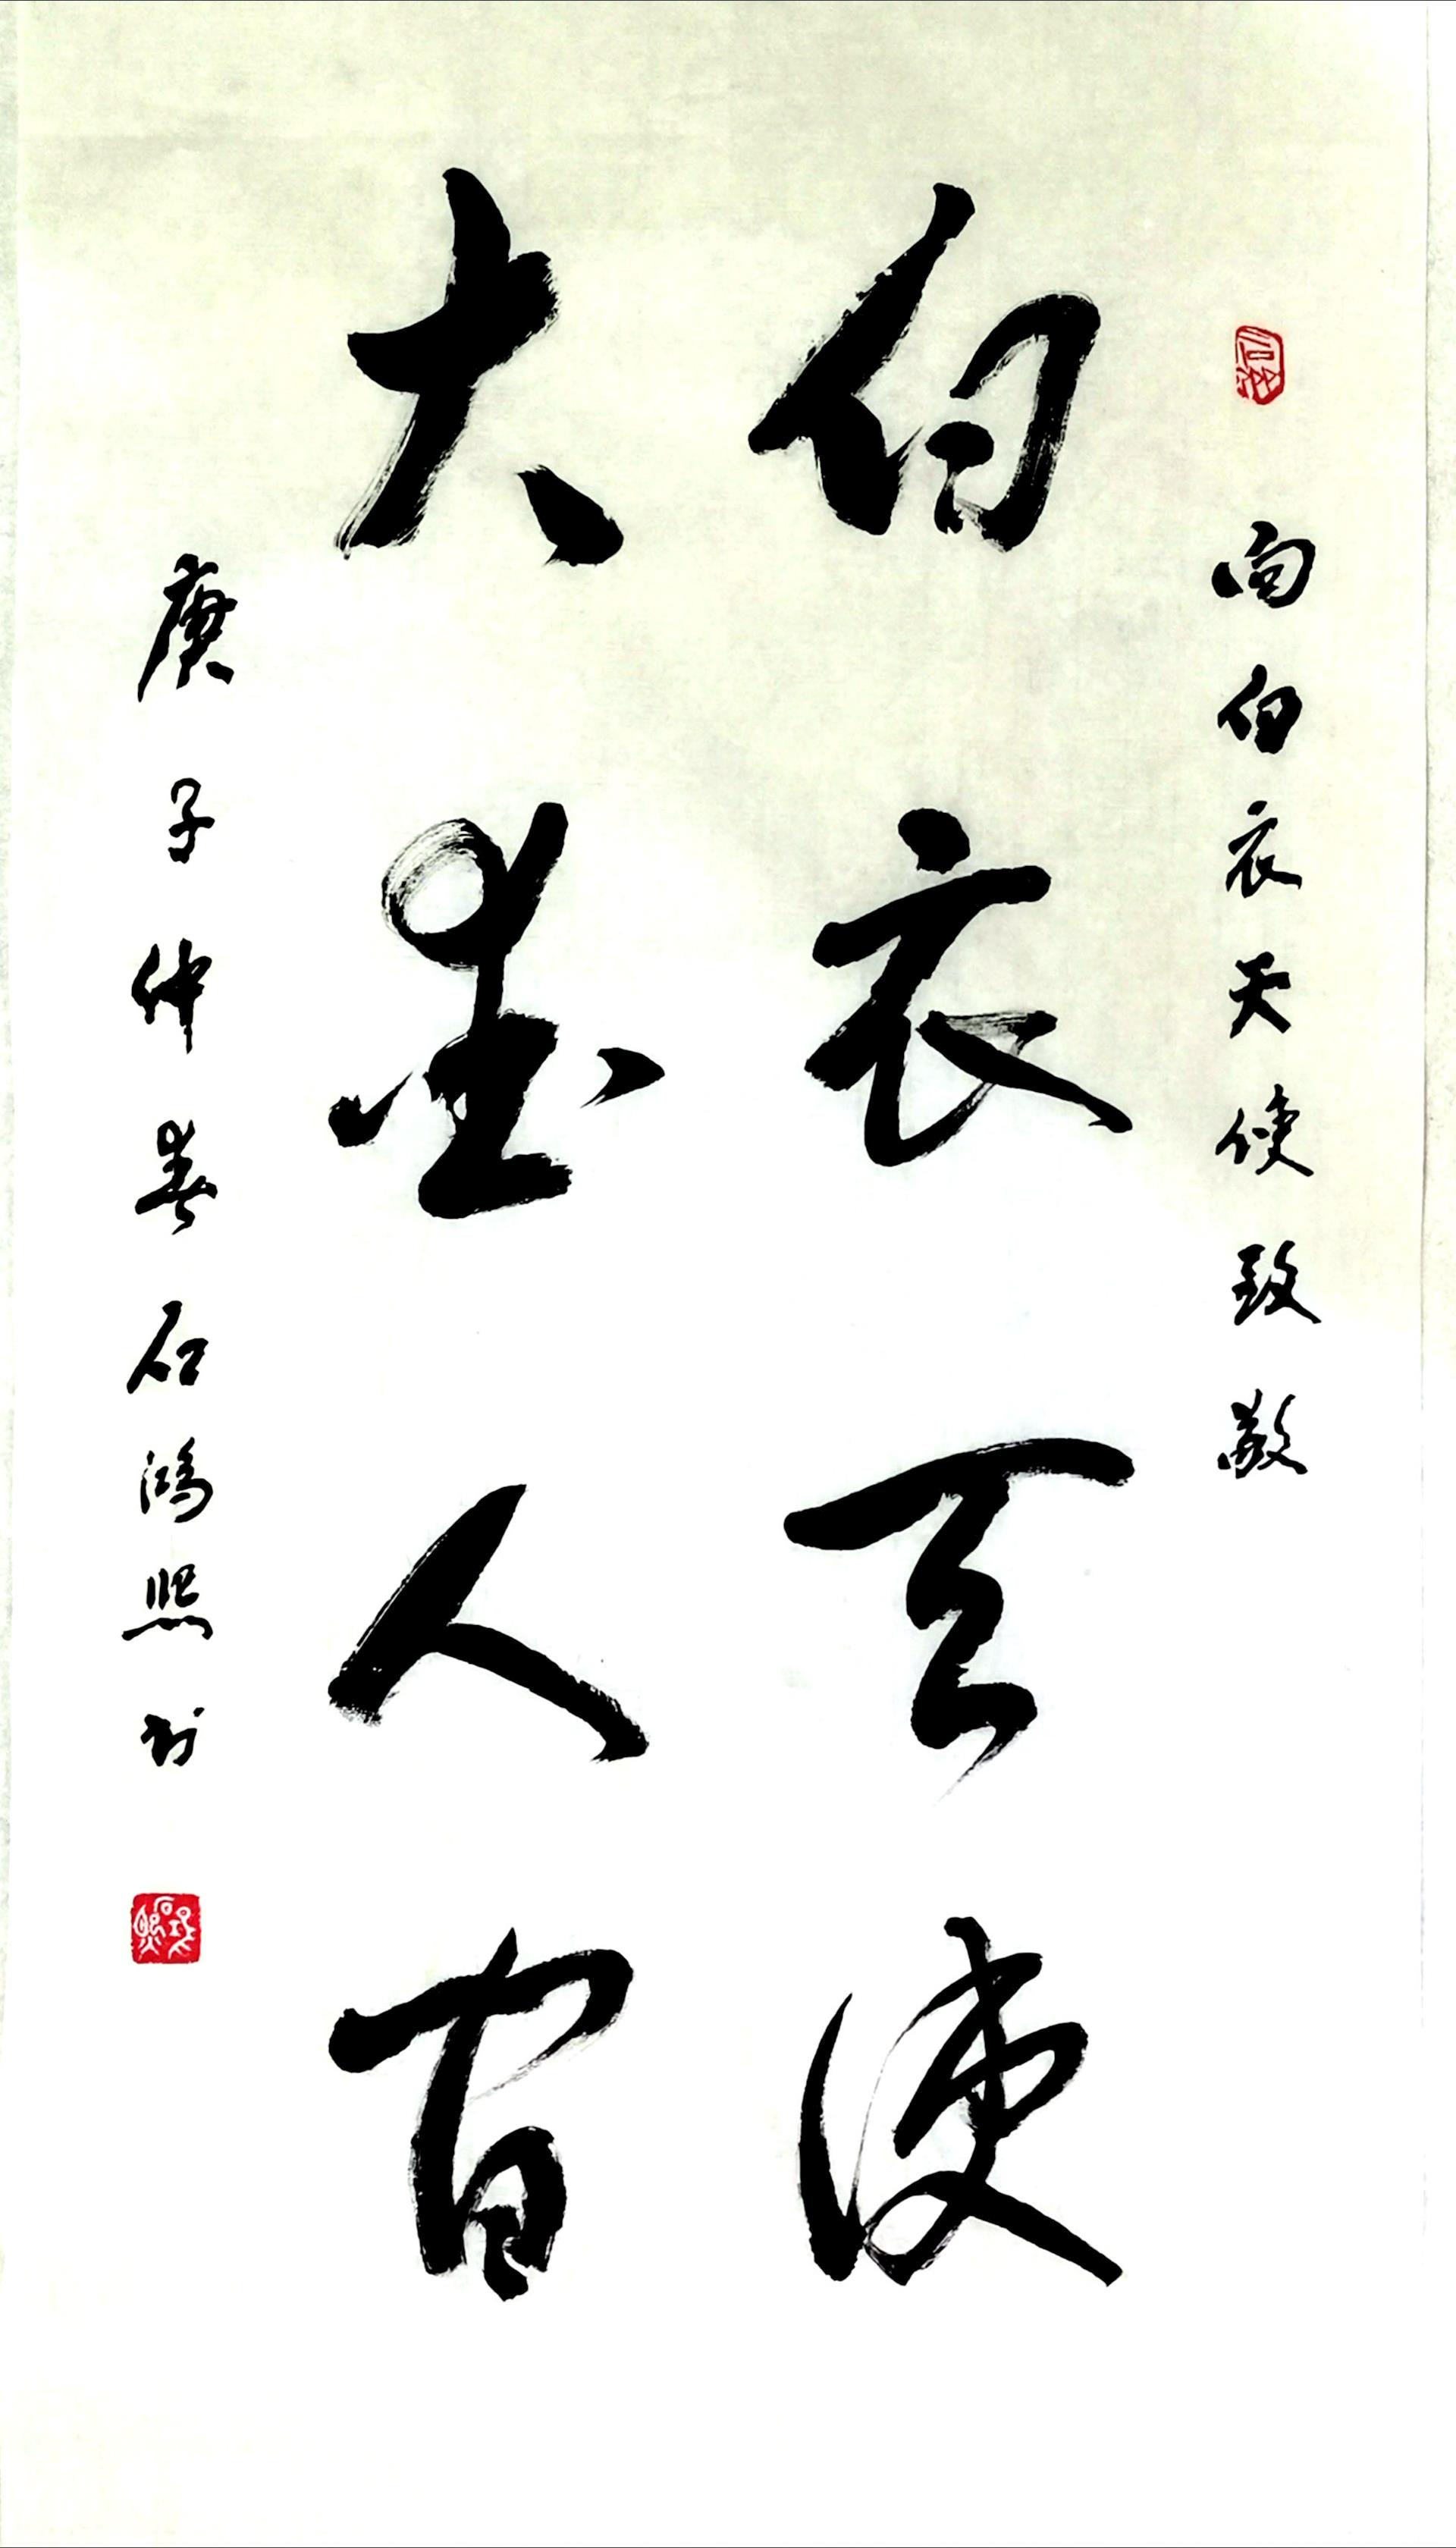 向白衣天使致敬
白衣天使
大爱人间
庚子仲春石鸿照书